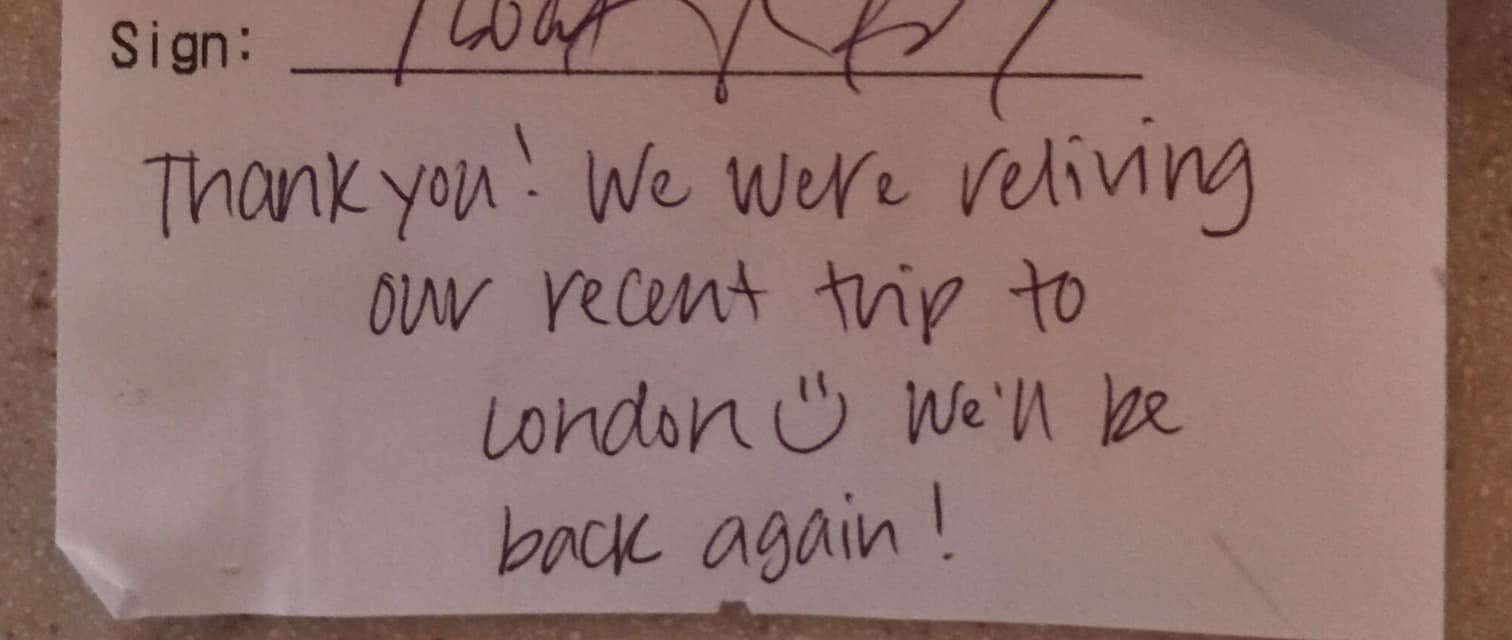 Sign:
Thank you! We were reliving
our recent trip to
London We'll be
back again!